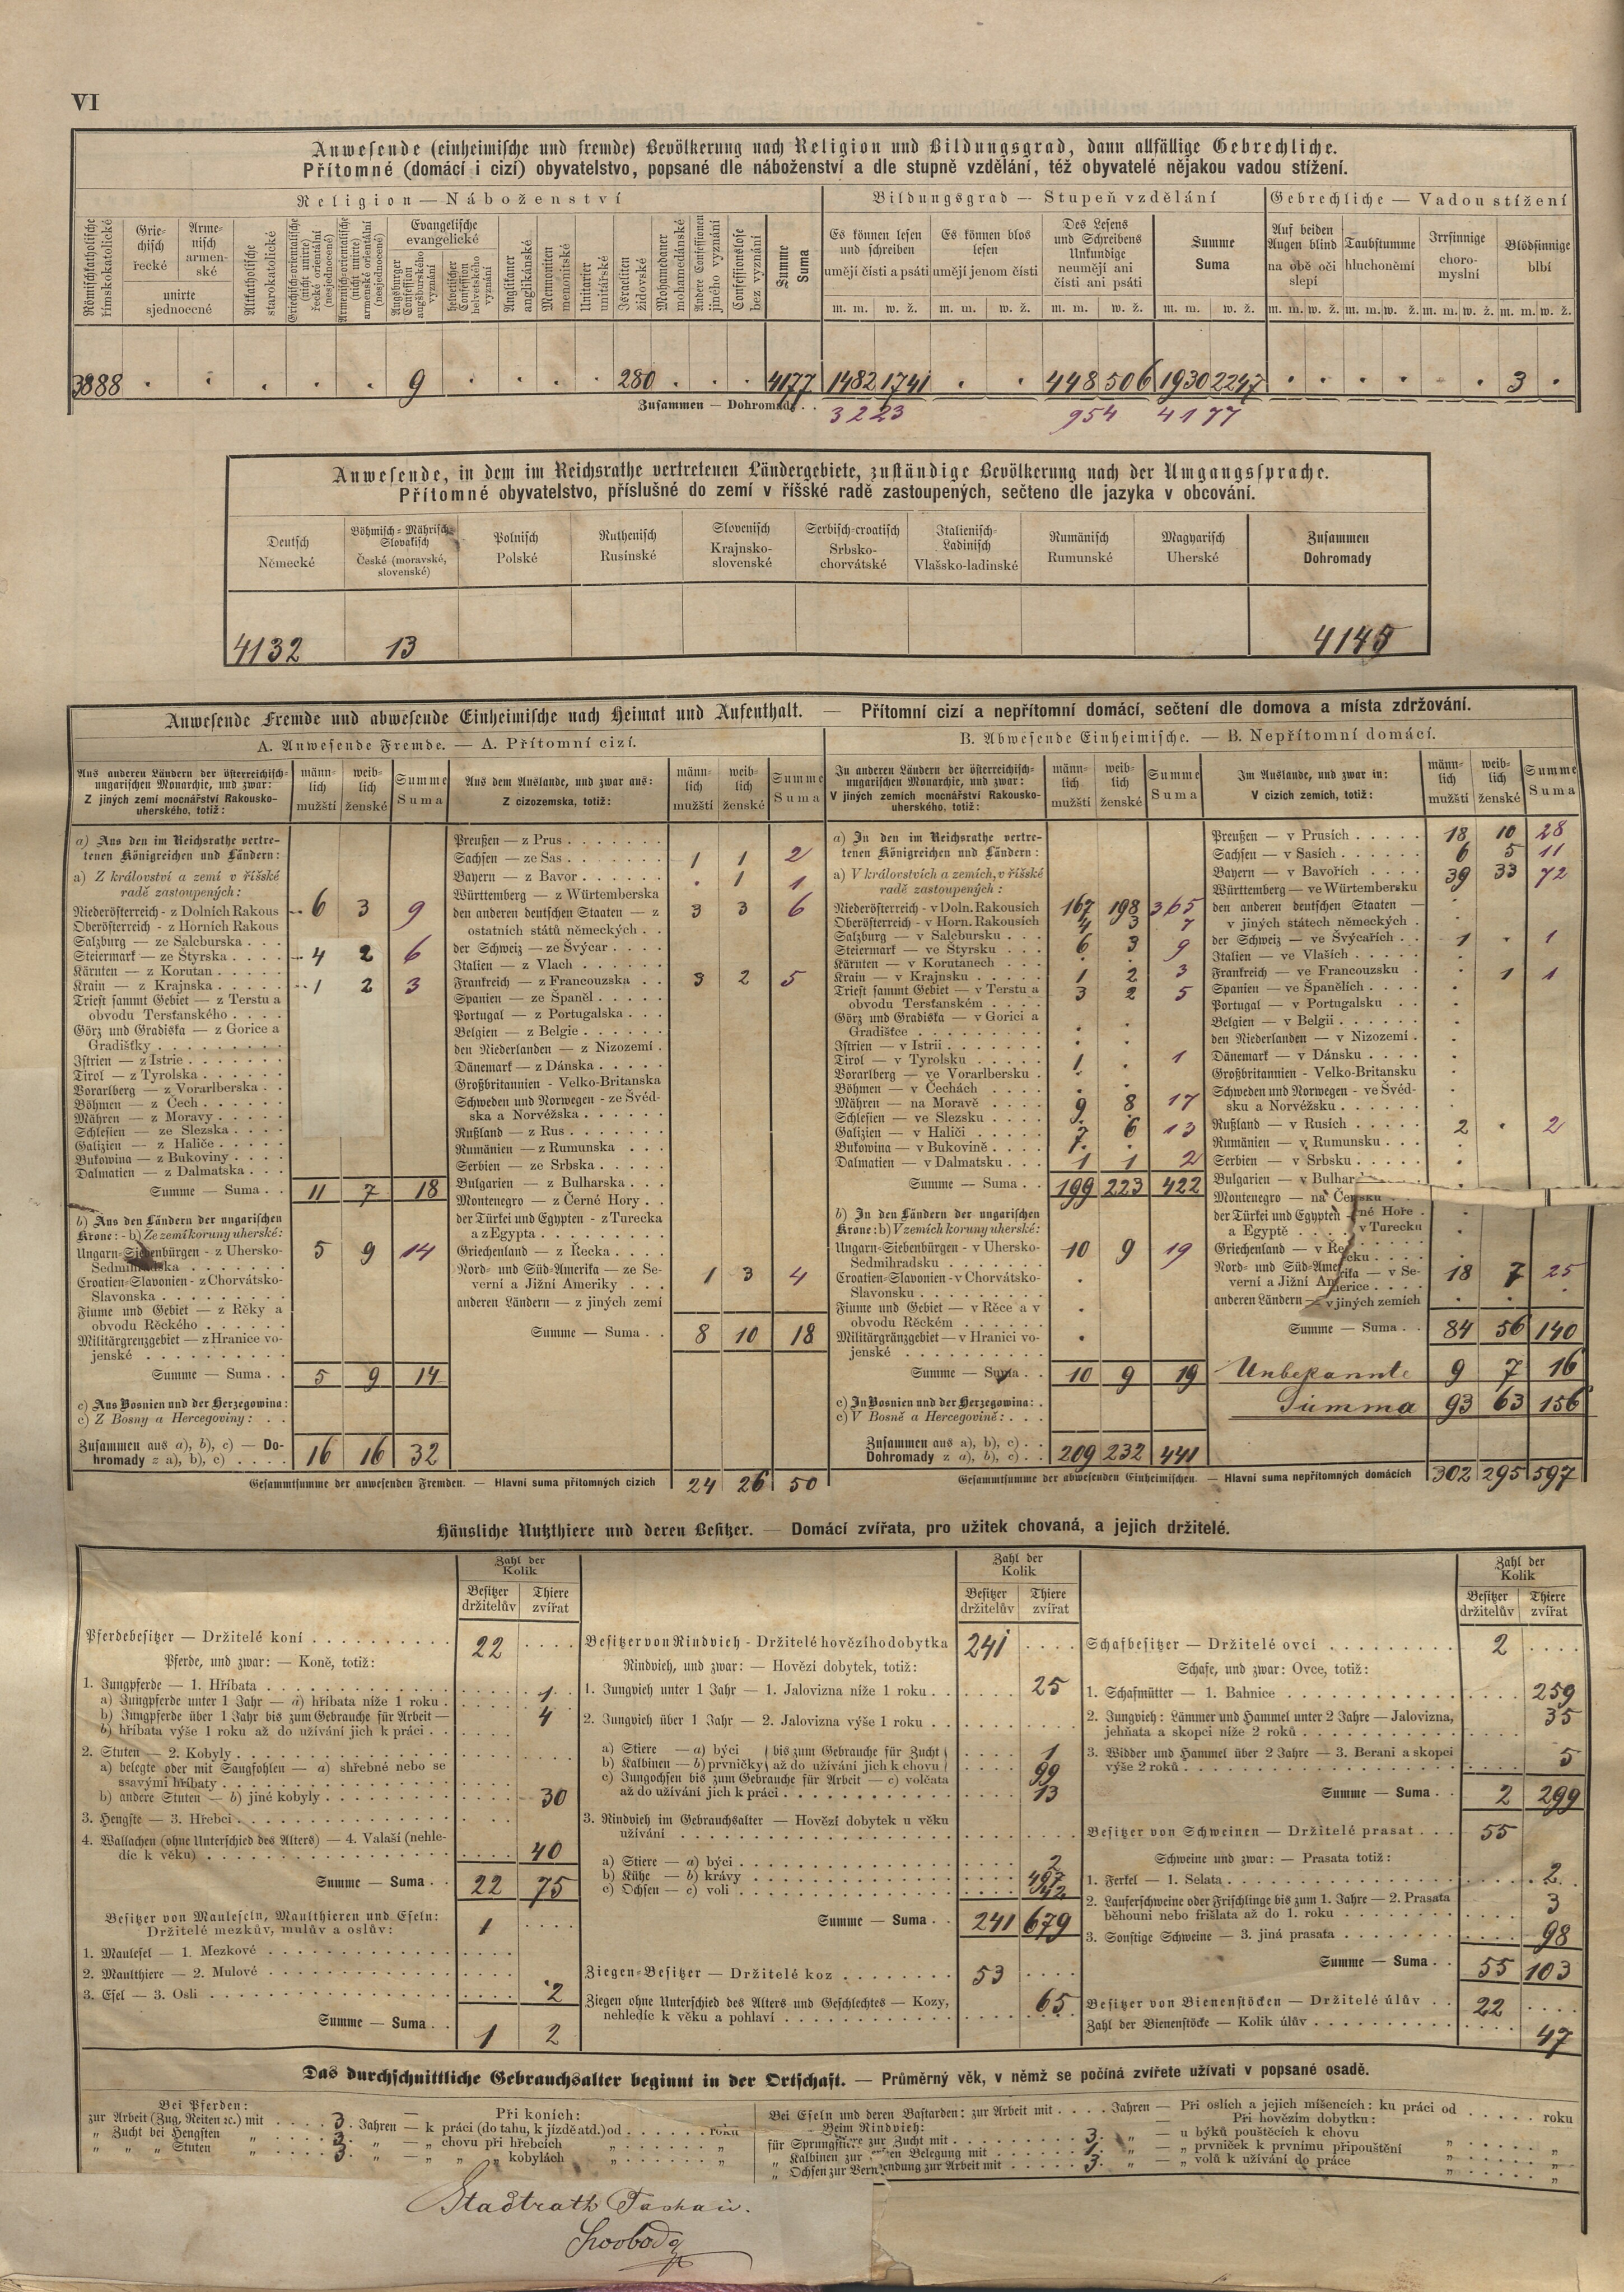 VI
Anwesende (einheimische und fremde) Bevölkerung nach Religion und Bildungsgrad, dann allfällige Gebrechliche.
Přítomné (domácí i cizí) obyvatelstvo, popsané dle náboženství a dle stupně vzdělání, též obyvatelé nějakou vadou stížení.
Religion — Náboženství
Bildungsgrad — Stupeň vzdělání
Gebrechliche — Vadou stížení
Römischkatholische římskokatolické
Griechisch řecké
Armenisch armenské
unirte sjednocené
Altkatholische starokatolické
Griechisch-orientalische (nicht unirte) řecké orientální (nesjednocené)
Armenisch-orientalische (nicht unirte) armenské orientální (nesjednocené)
Evangelische evangelické
Augsburger Confession augšburského vyznání
helvetischer Confession helvetského vyznání
Anglikaner anglikánské
Mennoniten menonitské
Unitarier unitářské
Israeliten židovské
Mohamedaner mohamedánské
Andere Confessionen jiného vyznání
Confessionslose bez vyznání
Summe Suma
Es können lesen und schreiben umějí čísti a psáti
Es können blos lesen umějí jenom čísti
Des Lesens und Schreibens Unkundige neumějí ani čísti ani psáti
Summe Suma
Auf beiden Augen blind na obě oči slepí
Taubstumme hluchoněmí
Irrsinnige choromyslní
Blödsinnige blbí
m. m. w. ž. m. m. w. ž. m. m. w. ž. m. m. w. ž. m. m. w. ž. m. m. w. ž. m. m. w. ž. m. m. w. ž.
3888 . . . . . 9 . . . . 280 . . . 4177 1482 1741 . . 448 506 1930 2247 . . . . . . 3 .
Zusammen — Dohromady . . 3223 954 4177
Anwesende, in dem im Reichsrathe vertretenen Ländergebiete, zuständige Bevölkerung nach der Umgangssprache.
Přítomné obyvatelstvo, příslušné do zemí v říšské radě zastoupených, sečteno dle jazyka v obcování.
Deutsch Německé
Böhmisch-Mährisch-Slovakisch České (moravské, slovenské)
Polnisch Polské
Ruthenisch Rusínské
Slovenisch Krajnsko-slovenské
Serbisch-croatisch Srbsko-chorvátské
Italienisch-Ladinisch Vlašsko-ladinské
Rumänisch Rumunské
Magyarisch Uherské
Zusammen Dohromady
4132 13 4145
Anwesende Fremde und abwesende Einheimische nach Heimat und Aufenthalt. — Přítomní cizí a nepřítomní domácí, sečtení dle domova a místa zdržování.
A. Anwesende Fremde. — A. Přítomní cizí.
B. Abwesende Einheimische. — B. Nepřítomní domácí.
Aus anderen Ländern der österreichisch-ungarischen Monarchie, und zwar:
Z jiných zemí mocnářství Rakousko-uherského, totiž:
männlich mužští
weiblich ženské
Summe Suma
a) Aus den im Reichsrathe vertretenen Königreichen und Ländern:
a) Z království a zemí v říšské radě zastoupených:
Niederösterreich - z Dolních Rakous 6 3 9
Oberösterreich - z Horních Rakous
Salzburg — ze Salcburska . . .
Steiermark — ze Štyrska . . . . 4 2 6
Kärnten — z Korutan . . . . .
Krain — z Krajnska . . . . . 1 2 3
Triest sammt Gebiet — z Terstu a obvodu Terstanského . . . .
Görz und Gradiska — z Gorice a Gradišťky . . . . . . . . .
Istrien — z Istrie . . . . . . .
Tirol — z Tyrolska . . . . . .
Vorarlberg — z Vorarlberska . .
Böhmen — z Čech . . . . . .
Mähren — z Moravy . . . . .
Schlesien — ze Slezska . . . .
Galizien — z Haliče . . . . .
Bukowina — z Bukoviny . . . .
Dalmatien — z Dalmatska . . .
Summe — Suma . . 11 7 18
b) Aus den Ländern der ungarischen Krone: - b) Ze zemí koruny uherské:
Ungarn-Siebenbürgen - z Uhersko-Sedmihradska 5 9 14
Croatien-Slavonien - z Chorvátsko-Slavonska . . . . . . . .
Fiume und Gebiet — z Rěky a obvodu Rěckého . . . . . .
Militärgrenzgebiet — z Hranice vojenské . . . . . . . . . .
Summe — Suma . . 5 9 14
c) Aus Bosnien und der Herzegowina:
c) Z Bosny a Hercegoviny: . .
Zusammen aus a), b), c) — Dohromady z a), b), c) . . . . 16 16 32
Aus dem Auslande, und zwar aus:
Z cizozemska, totiž:
männlich mužští
weiblich ženské
Summe Suma
Preußen — z Prus . . . . . . .
Sachsen — ze Sas . . . . . . . 1 1 2
Bayern — z Bavor . . . . . . . 1 1
Württemberg — z Würtemberska
den anderen deutschen Staaten — z ostatních států německých . . 3 3 6
der Schweiz — ze Švýcar . . . .
Italien — z Vlach . . . . . .
Frankreich — z Francouzska . . 3 2 5
Spanien — ze Španěl . . . . .
Portugal — z Portugalska . . .
Belgien — z Belgie . . . . . .
den Niederlanden — z Nizozemí .
Dänemark — z Dánska . . . . .
Großbritannien - Velko-Britanska
Schweden und Norwegen - ze Švédska a Norvéžska . . . . . .
Rußland — z Rus . . . . . . .
Rumänien — z Rumunska . . .
Serbien — ze Srbska . . . . .
Bulgarien — z Bulharska . . .
Montenegro — z Černé Hory . .
der Türkei und Egypten - z Turecka a z Egypta . . . . . . . . .
Griechenland — z Řecka . . . .
Nord- und Süd-Amerika — ze Severní a Jižní Ameriky . . . 1 3 4
anderen Ländern — z jiných zemí
Summe — Suma . . 8 10 18
Gesammtsumme der anwesenden Fremden. — Hlavní suma přítomných cizích 24 26 50
In anderen Ländern der österreichisch-ungarischen Monarchie, und zwar:
V jiných zemích mocnářství Rakousko-uherského, totiž:
männlich mužští
weiblich ženské
Summe Suma
a) In den im Reichsrathe vertretenen Königreichen und Ländern:
a) V královstvích a zemích, v říšské radě zastoupených:
Niederösterreich - v Doln. Rakousích 167 198 365
Oberösterreich - v Horn. Rakousích 4 3 7
Salzburg — v Salcbursku . . .
Steiermark — ve Štyrsku . . . 6 3 9
Kärnten — v Korutanech . . .
Krain — v Krajnsku . . . . . 1 2 3
Triest sammt Gebiet — v Terstu a obvodu Terstanském . . . . 3 2 5
Görz und Gradiska — v Gorici a Gradišťce . . . . . . . . .
Istrien — v Istrii . . . . . . .
Tirol — v Tyrolsku . . . . . 1 . 1
Vorarlberg — ve Vorarlbersku .
Böhmen — v Čechách . . . .
Mähren — na Moravě . . . . 9 8 17
Schlesien — ve Slezsku . . . .
Galizien — v Haliči . . . . . 7 6 13
Bukowina — v Bukovině . . . .
Dalmatien — v Dalmatsku . . . 1 1 2
Summe — Suma . . 199 223 422
b) In den Ländern der ungarischen Krone: b) V zemích koruny uherské:
Ungarn-Siebenbürgen - v Uhersko-Sedmihradsku . . . . . . . 10 9 19
Croatien-Slavonien - v Chorvátsko-Slavonsku . . . . . . . .
Fiume und Gebiet — v Rěce a v obvodu Rěckém . . . . . .
Militärgränzgebiet — v Hranici vojenské . . . . . . . . . .
Summe — Suma . . 10 9 19
c) In Bosnien und der Herzegowina: .
c) V Bosně a Hercegovině: . . .
Zusammen aus a), b), c) . . Dohromady z a), b), c) . . 209 232 441
Im Auslande, und zwar in:
V cizích zemích, totiž:
männlich mužští
weiblich ženské
Summe Suma
Preußen — v Prusích . . . . . 18 10 28
Sachsen — v Sasích . . . . . . 6 5 11
Bayern — v Bavořích . . . . . 39 33 72
Württemberg — ve Würtembersku
den anderen deutschen Staaten — v jiných státech německých .
der Schweiz — ve Švýcařích . . 1 . 1
Italien — ve Vlaších . . . . .
Frankreich — ve Francouzsku . . 1 1
Spanien — ve Španělích . . . .
Portugal — v Portugalsku . .
Belgien — v Belgii . . . . . .
den Niederlanden — v Nizozemí .
Dänemark — v Dánsku . . . .
Großbritannien - Velko-Britansku
Schweden und Norwegen - ve Švédsku a Norvéžsku . . . . . .
Rußland — v Rusích . . . . . 2 . 2
Rumänien — v Rumunsku . . .
Serbien — v Srbsku . . . . .
Bulgarien — v Bulhar
Montenegro — na Če né Hoře .
der Türkei und Egypten - v Turecku a Egyptě . . . .
Griechenland — v Ře cku . . . .
Nord- und Süd-Amerika — v Severní a Jižní Americe . . . 18 7 25
anderen Ländern — v jiných zemích
Summe — Suma . . 84 56 140
Unbekannte 9 7 16
Summa 93 63 156
Gesammtsumme der abwesenden Einheimischen. — Hlavní suma nepřítomných domácích 302 295 597
Häusliche Nutzthiere und deren Besitzer. — Domácí zvířata, pro užitek chovaná, a jejich držitelé.
Zahl der Kolik
Besitzer držitelův
Thiere zvířat
Pferdebesitzer — Držitelé koní . . . . . . . . . . 22
Pferde, und zwar: — Koně, totiž:
1. Jungpferde — 1. Hříbata . . . . . . . . . . .
a) Jungpferde unter 1 Jahr — a) hříbata níže 1 roku . 1
b) Jungpferde über 1 Jahr bis zum Gebrauche für Arbeit — b) hříbata výše 1 roku až do užívání jich k práci . . 4
2. Stuten — 2. Kobyly . . . . . . . . . . . . .
a) belegte oder mit Saugfohlen — a) shřebné nebo se ssavými hříbaty . . . . . . . . . . . . .
b) andere Stuten — b) jiné kobyly . . . . . . . . 30
3. Hengste — 3. Hřebci . . . . . . . . . . . . .
4. Wallachen (ohne Unterschied des Alters) — 4. Valaši (nehledíc k věku) . . . . . . . . . . . . . . . 40
Summe — Suma . . 22 75
Besitzer von Mauleseln, Maulthieren und Eseln:
Držitelé mezkův, mulův a oslův: 1
1. Maulesel — 1. Mezkové . . . . . . . . . . . .
2. Maulthiere — 2. Mulové . . . . . . . . . . . .
3. Esel — 3. Osli . . . . . . . . . . . . . . . 2
Summe — Suma . . 1 2
Zahl der Kolik
Besitzer držitelův
Thiere zvířat
Besitzer von Rindvieh - Držitelé hovězího dobytka 241
Rindvieh, und zwar: — Hovězí dobytek, totiž:
1. Jungvieh unter 1 Jahr — 1. Jalovizna níže 1 roku . . 25
2. Jungvieh über 1 Jahr — 2. Jalovizna výše 1 roku . .
a) Stiere — a) býci bis zum Gebrauche für Zucht 1
b) Kalbinen — b) prvničky až do užívání jich k chovu 99
c) Jungochsen bis zum Gebrauche für Arbeit — c) volčata až do užívání jich k práci . . . . . . . . . 13
3. Rindvieh im Gebrauchsalter — Hovězí dobytek u věku užívání . . . . . . . . . . . . . . . .
a) Stiere — a) býci . . . . . . . . . . . . . 2
b) Kühe — b) krávy . . . . . . . . . . . . . 497
c) Ochsen — c) voli . . . . . . . . . . . . . 42
Summe — Suma . . 241 679
Ziegen-Besitzer — Držitelé koz . . . . . . . . 53
Ziegen ohne Unterschied des Alters und Geschlechtes — Kozy, nehledíc k věku a pohlaví . . . . . . . . . . 65
Zahl der Kolik
Besitzer držitelův
Thiere zvířat
Schafbesitzer — Držitelé ovcí . . . . . . . . . 2
Schafe, und zwar: Ovce, totiž:
1. Schafmütter — 1. Bahnice . . . . . . . . . . 259
2. Jungvieh: Lämmer und Hammel unter 2 Jahre — Jalovizna, jehňata a skopci níže 2 roků . . . . . . . . . 35
3. Widder und Hammel über 2 Jahre — 3. Berani a skopci výše 2 roků . . . . . . . . . . . . . . . . 5
Summe — Suma . . 2 299
Besitzer von Schweinen — Držitelé prasat . . . 55
Schweine und zwar: — Prasata totiž:
1. Ferkel — 1. Selata . . . . . . . . . . . . . . 2
2. Lauferschweine oder Frischlinge bis zum 1. Jahre — 2. Prasata běhouni nebo frišlata až do 1. roku . . . . . . . 3
3. Sonstige Schweine — 3. jiná prasata . . . . . . . 98
Summe — Suma . . 55 103
Besitzer von Bienenstöcken — Držitelé úlův . . 22
Zahl der Bienenstöcke — Kolik úlův . . . . . . . . . 47
Das durchschnittliche Gebrauchsalter beginnt in der Ortschaft. — Průměrný věk, v němž se počíná zvířete užívati v popsané osadě.
Bei Pferden: — Při koních:
zur Arbeit (Zug, Reiten ec.) mit . . . . 3. Jahren — k práci (do tahu, k jízdě atd.) od . . . . . . roku
„ Zucht bei Hengsten „ . . . . 3. „ — „ chovu při hřebcích „ . . . . . . „
„ „ „ Stuten „ . . . . 3. „ — „ „ „ kobylách „ . . . . . . „
Bei Eseln und deren Bastarden: zur Arbeit mit . . . . Jahren — Při oslích a jejich míšencích: ku práci od . . . . . roku
Beim Rindvieh: — Při hovězím dobytku:
für Sprungstiere zur Zucht mit . . . . . . . . . 3. „ — u býků pouštěcích k chovu „ . . . . . „
„ Kalbinen zur en Belegung mit . . . . . . 1. „ — „ prvniček k prvnímu připouštění „ . . . . . „
„ Ochsen zur Verwendung zur Arbeit mit . . . . . 3. „ — „ volů k užívání do práce „ . . . . . „
Stadtrath Tachau.
Svoboda